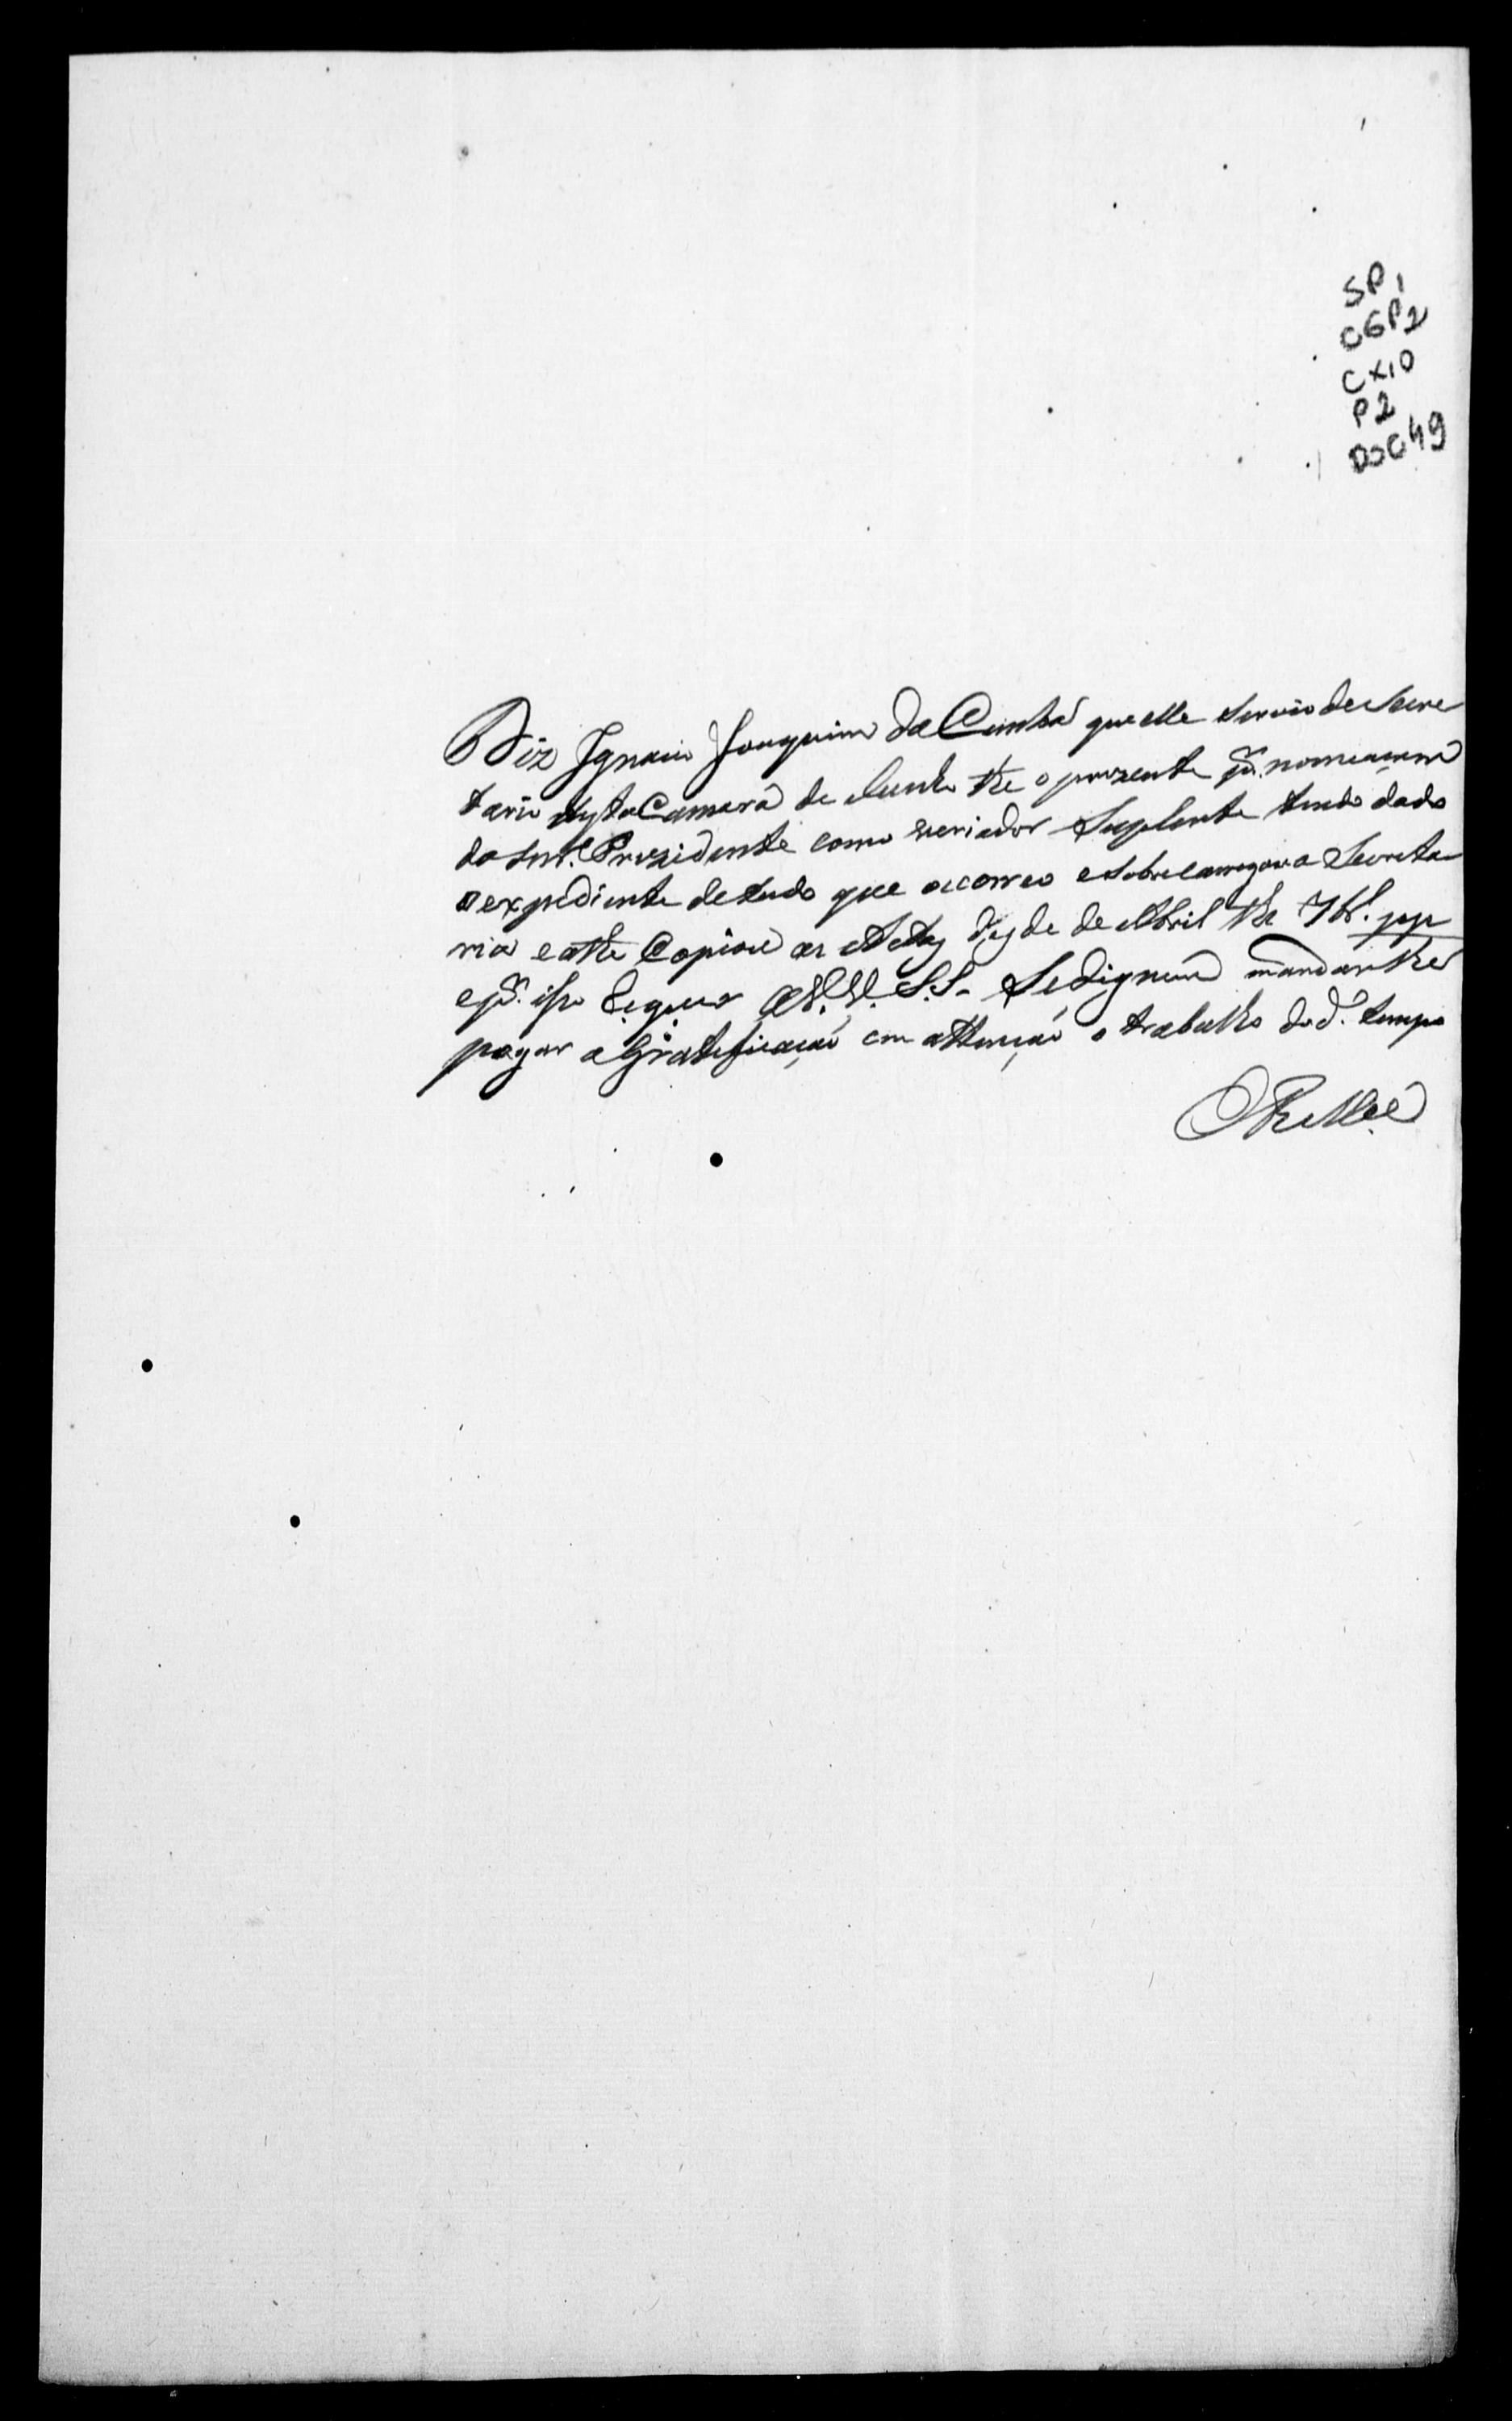 SP1
CGP2
CX10
P2
DOC49
Diz Ignacio Joaquim da Cunha que elle servio de Secre
tario desta Camara de Junho the o prezente pr. nomeaçam
do Snr. Prezidente como veriador Suplente tendo dado
o expediente de tudo que ocorreo e sobrecarregou a Secreta
ria e athe Copiou as Actas desde Abril the
e pr. isso Requer a V.V. S.S. Se dignem mandar lhe
pagar a Gratificação em attenção o trabalho do d. tempo
E R Mce